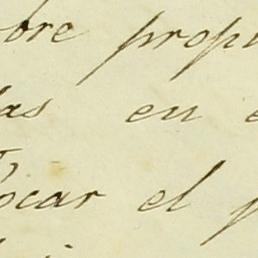 ore propi
las en e
ocar el p